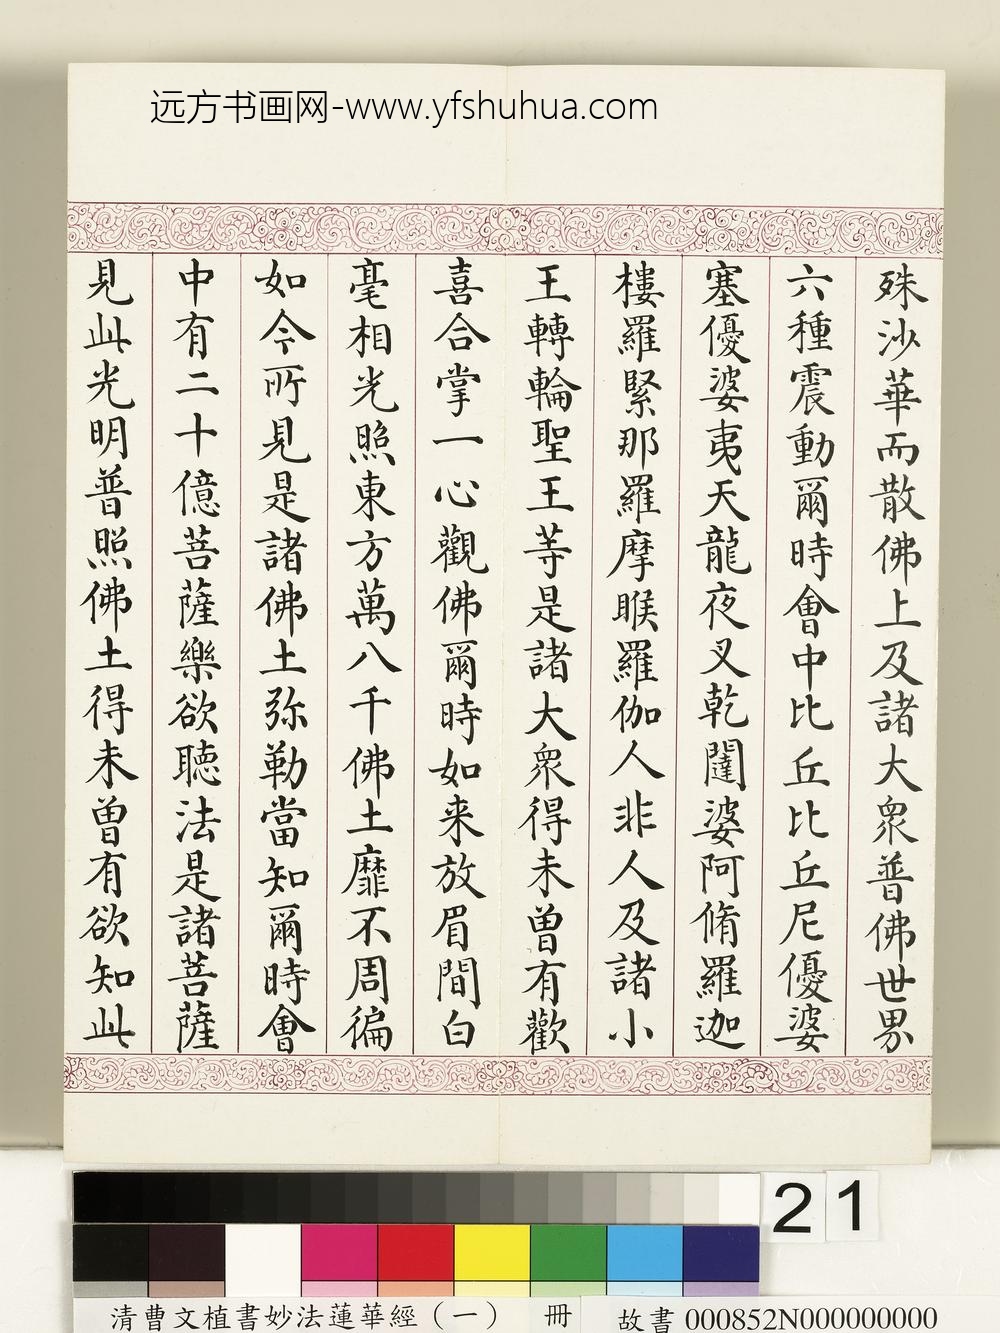 远方书画网-www.yfshuhua.com
殊沙華而散佛上及諸大眾普佛世界
六種震動爾時會中比丘比丘尼優婆
塞優婆夷天龍夜叉乾闥婆阿脩羅迦
樓羅緊那羅摩睺羅伽人非人及諸小
王轉輪聖王等是諸大眾得未曾有歡
喜合掌一心觀佛爾時如来放眉間白
毫相光照東方萬八千佛土靡不周徧
如今所見是諸佛土弥勒當知爾時會
中有二十億菩薩樂欲聽法是諸菩薩
見此光明普照佛土得未曾有欲知此
21
清曹文植書妙法蓮華經（一） 冊
故書 000852N000000000